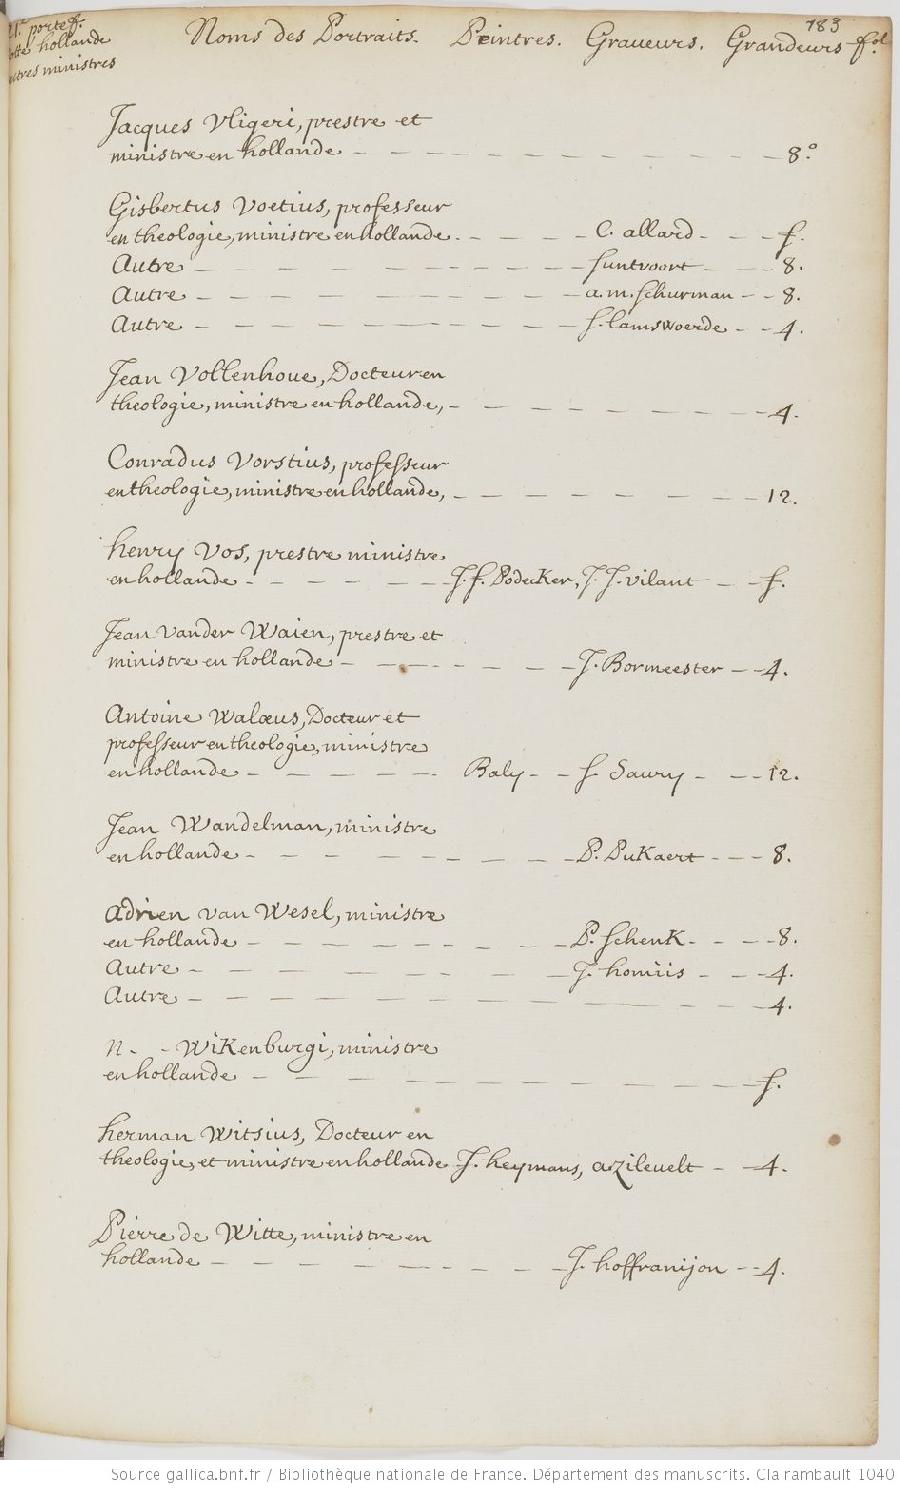 183
21.e portef.
hollande
ministres
Noms des Portraits. Peintres. Graveurs. Grandeurs fol.
Jacques Vligeri, prestre et
ministre en hollande - - - - - - - - 8.o
Gisbertus Voetius, professeur
en theologie, ministre en hollande - - - - C. allard - - - f.
Autre - - - - - - - suntvoort - - - 8.
Autre - - - - - - - a.m. schurman - - 8.
Autre - - - - - - - s. lamswoerde - - 4.
Jean Vollenhoue, Docteur en
theologie, ministre en hollande, - - - - - - - 4.
Conradus Vorstius, professeur
en theologie, ministre en hollande, - - - - - - 12.
henry Vos, prestre ministre
en hollande - - - - - J. f. Bodecker, J. J. vilant - - f.
Jean vander Waien, prestre et
ministre en hollande - - - - - - J. Bormeester - - 4.
Antoine Walæus, Docteur et
professeur en theologie, ministre
en hollande - - - - - Baly - - s. Saury - - - 12.
Jean Wandelman, ministre
en hollande - - - - - - - - P. Pukaert - - - 8.
Adrien van Wesel, ministre
en hollande - - - - - - - - P. schenk - - - 8.
Autre - - - - - - - - J. homüs - - - 4.
Autre - - - - - - - - - - - 4.
n. - - Wikenburgi, ministre
en hollande - - - - - - - - - - f.
herman Witsius, Docteur en
theologie, et ministre en hollande J. heymans, a. zilevelt - - 4.
Pierre de Witte, ministre en
hollande - - - - - - - - J. hoffranijon - - 4.
Source gallica.bnf.fr / Bibliothèque nationale de France. Département des manuscrits. Clairambault 1040